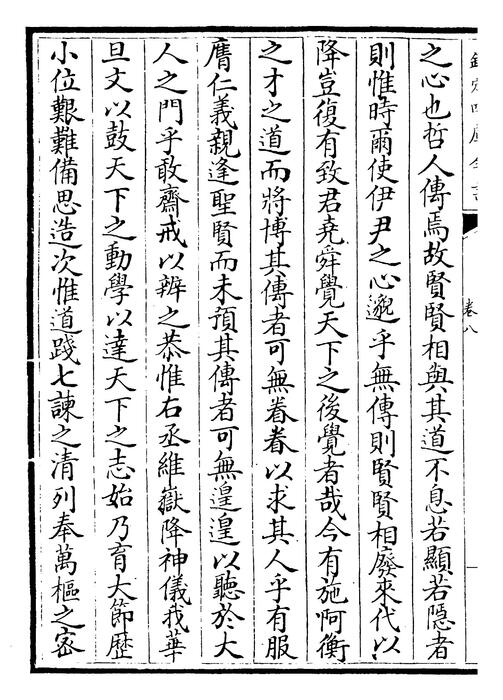 欽定四庫全書
卷八
之心也哲人傳焉故賢賢相與其道不息若顯若隱者
則惟時爾使伊尹之心邈乎無傳則賢賢相廢來代以
降豈復有致君堯舜覺天下之後覺者哉今有施阿衡
之才之道而將博其傳者可無眷眷以求其人乎有服
膺仁義親逢聖賢而未預其傳者可無遑遑以聽於大
人之門乎敢齋戒以辨之恭惟右丞維嶽降神儀我華
旦文以鼓天下之動學以達天下之志始乃育大節歷
小位艱難備思造次惟道踐七諫之清列奉萬樞之宻